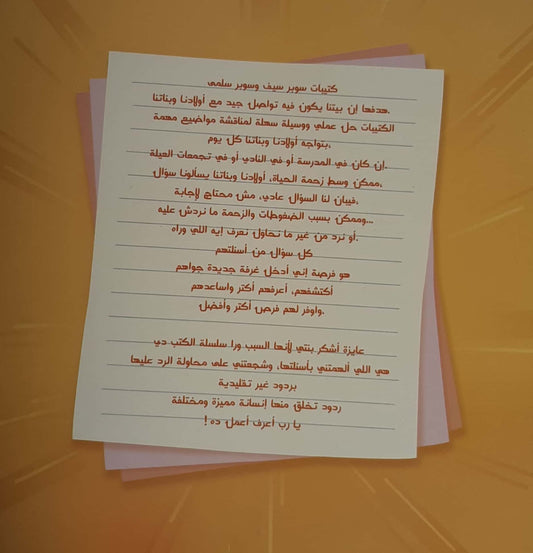 كتيبات سوبر سيف وسوبر سلمى
هدفها ان بيتنا يكون فيه تواصل جيد مع أولادنا وبناتنا.
الكتيبات حل عملي ووسيلة سهلة لمناقشة مواضيع مهمة
بتواجه أولادنا وبناتنا كل يوم.
إن كان في المدرسة أو في النادي أو في تجمعات العيلة.
ممكن وسط زحمة الحياة، أولادنا وبناتنا يسألونا سؤال.
فيبان لنا السؤال عادي، مش محتاج لإجابة.
وممكن بسبب الضغوطات والزحمة ما نردش عليه...
أو نرد من غير ما نحاول نعرف إيه اللي وراه.
كل سؤال من أسئلتهم
هو فرصة إني أدخل غرفة جديدة جواهم
أكتشفهم، أعرفهم أكتر واساعدهم
وأوفر لهم فرص أكتر وأفضل.
عايزة أشكر بنتي لأنها السبب ورا سلسلة الكتب دي
هي اللي ألهمتني بأسئلتها، وشجعتني على محاولة الرد عليها
بردود غير تقليدية
ردود تخلق منها إنسانة مميزة ومختلفة
يا رب أعرف أعمل ده !